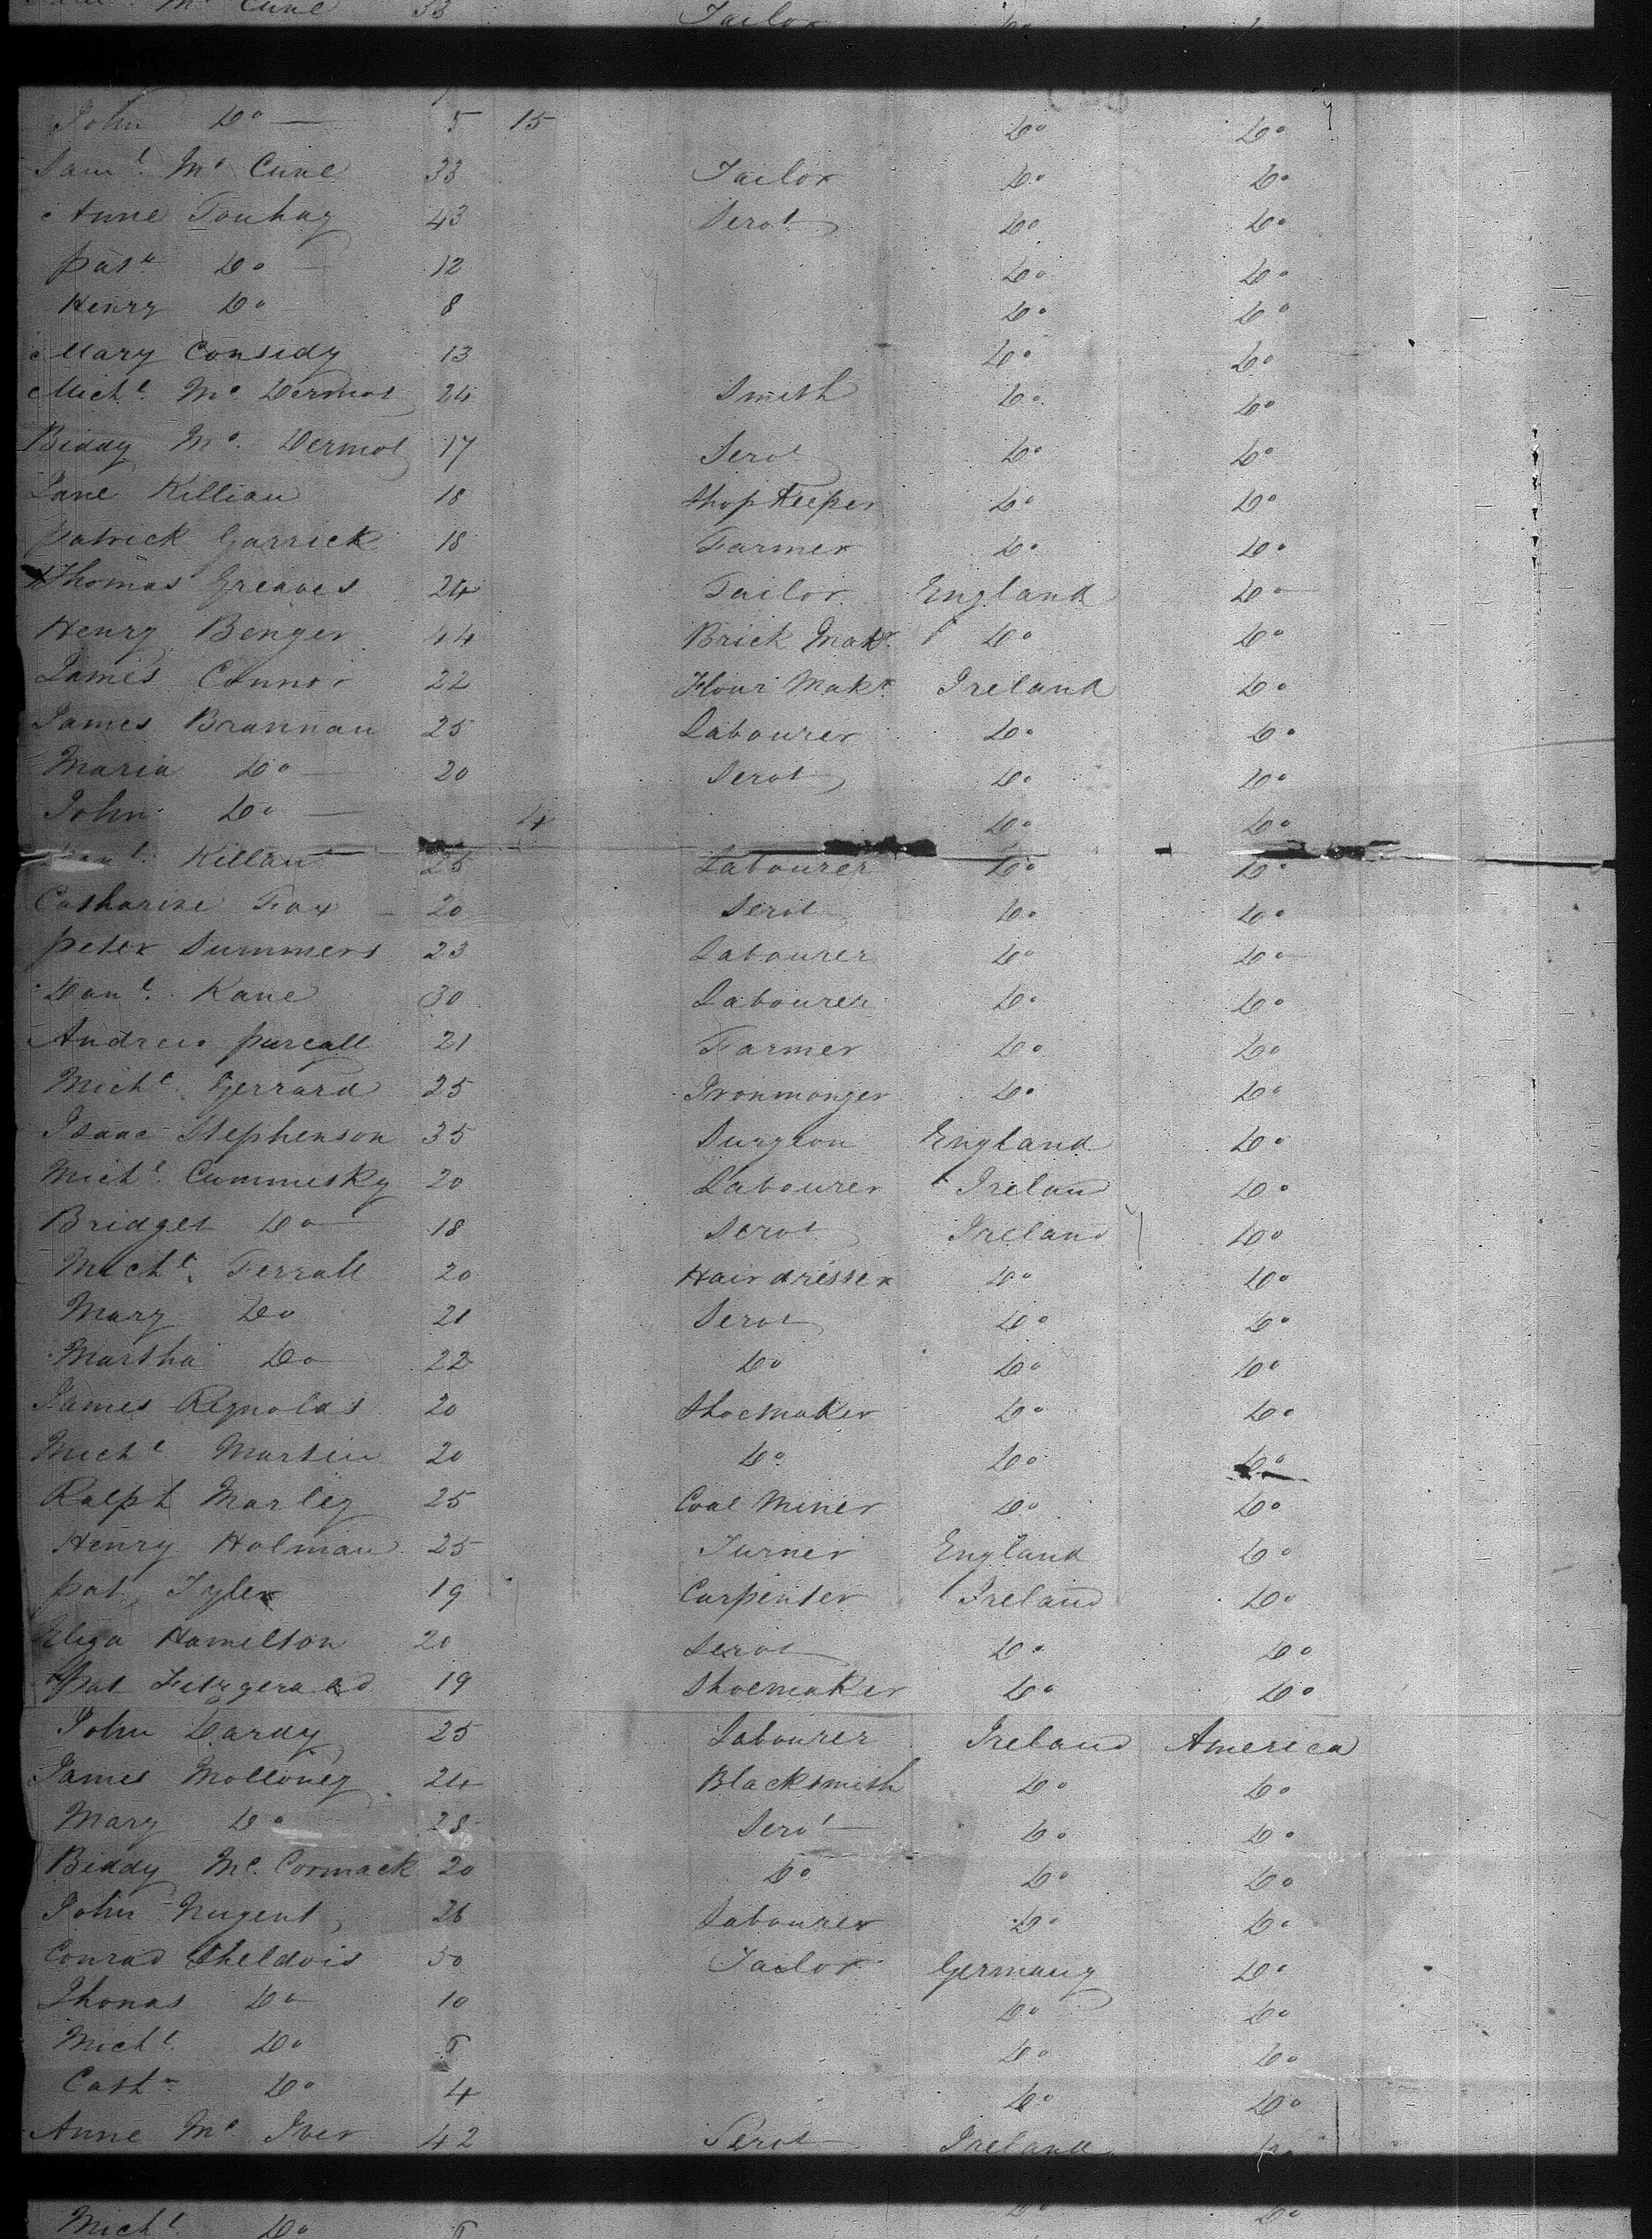 Mc Cune 33 Tailor Do Do
John Do — 5 15 Do Do
Saml. Mc Cune 33 Tailor Do Do
Anne Touhay 43 Servt Do Do
Do — 12 Do Do
Henry Do 8 Do Do
Mary Considy 13 Do Do
Michl. Mc. Dermot 24 Smith Do Do
Biddy Mc. Dermot 17 Servt Do Do
Jane Killian 18 Shop Keeper Do Do
Patrick Garrick 18 Farmer Do Do
Thomas Greaves 24 Tailor England Do
Henry Benger 44 Brick Makr. Do Do
James Connor 22 Flour Makr Ireland Do
James Brannan 25 Labourer Do Do
Maria Do — 20 Servt Do Do
John Do — 4 Do Do
Killan 25 Labourer Do Do
Catharine Fox 20 Servt Do Do
Peter Summers 23 Labourer Do Do
Danl. Kane 30 Labourer Do Do
Andrew Purcall 21 Farmer Do Do
Michl Gerrard 25 Ironmonger Do Do
Isaac Stephenson 35 Surgeon England Do
Michl. Cummisky 20 Labourer Ireland Do
Bridget Do 18 Servt Ireland Do
Michl. Ferrall 20 Hairdresser Do Do
Mary Do 21 Servt Do Do
Martha Do 22 Do Do Do
James Reynolds 20 Shoemaker Do Do
Michl Martin 20 Do Do Do
Ralph Marley 25 Coal Miner Do Do
Henry Holman 25 Turner England Do
Pat, Tyler 19 Carpenter Ireland Do
Eliza Hamelton 20 Servt Do Do
Pat Fitzgerald 19 Shoemaker Do Do
John Dardy 25 Labourer Ireland America
James Molloney 24 Blacksmith Do Do
Mary Do 28 Servt Do Do
Biddy Mc. Cormack 20 Do Do Do
John Nugent, 26 Labourer Do Do
Conrad Sheldois 50 Tailor Germany Do
Thonas Do 10 Do Do
Michl. Do 6 Do Do
Cathn Do 4 Do Do
Anne Mc Iver 42 Servt Ireland Do
Michl Do 6 Do Do